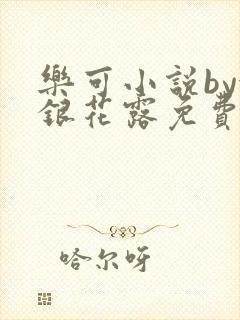 樂可小說by
銀花露免費
哈尔呀